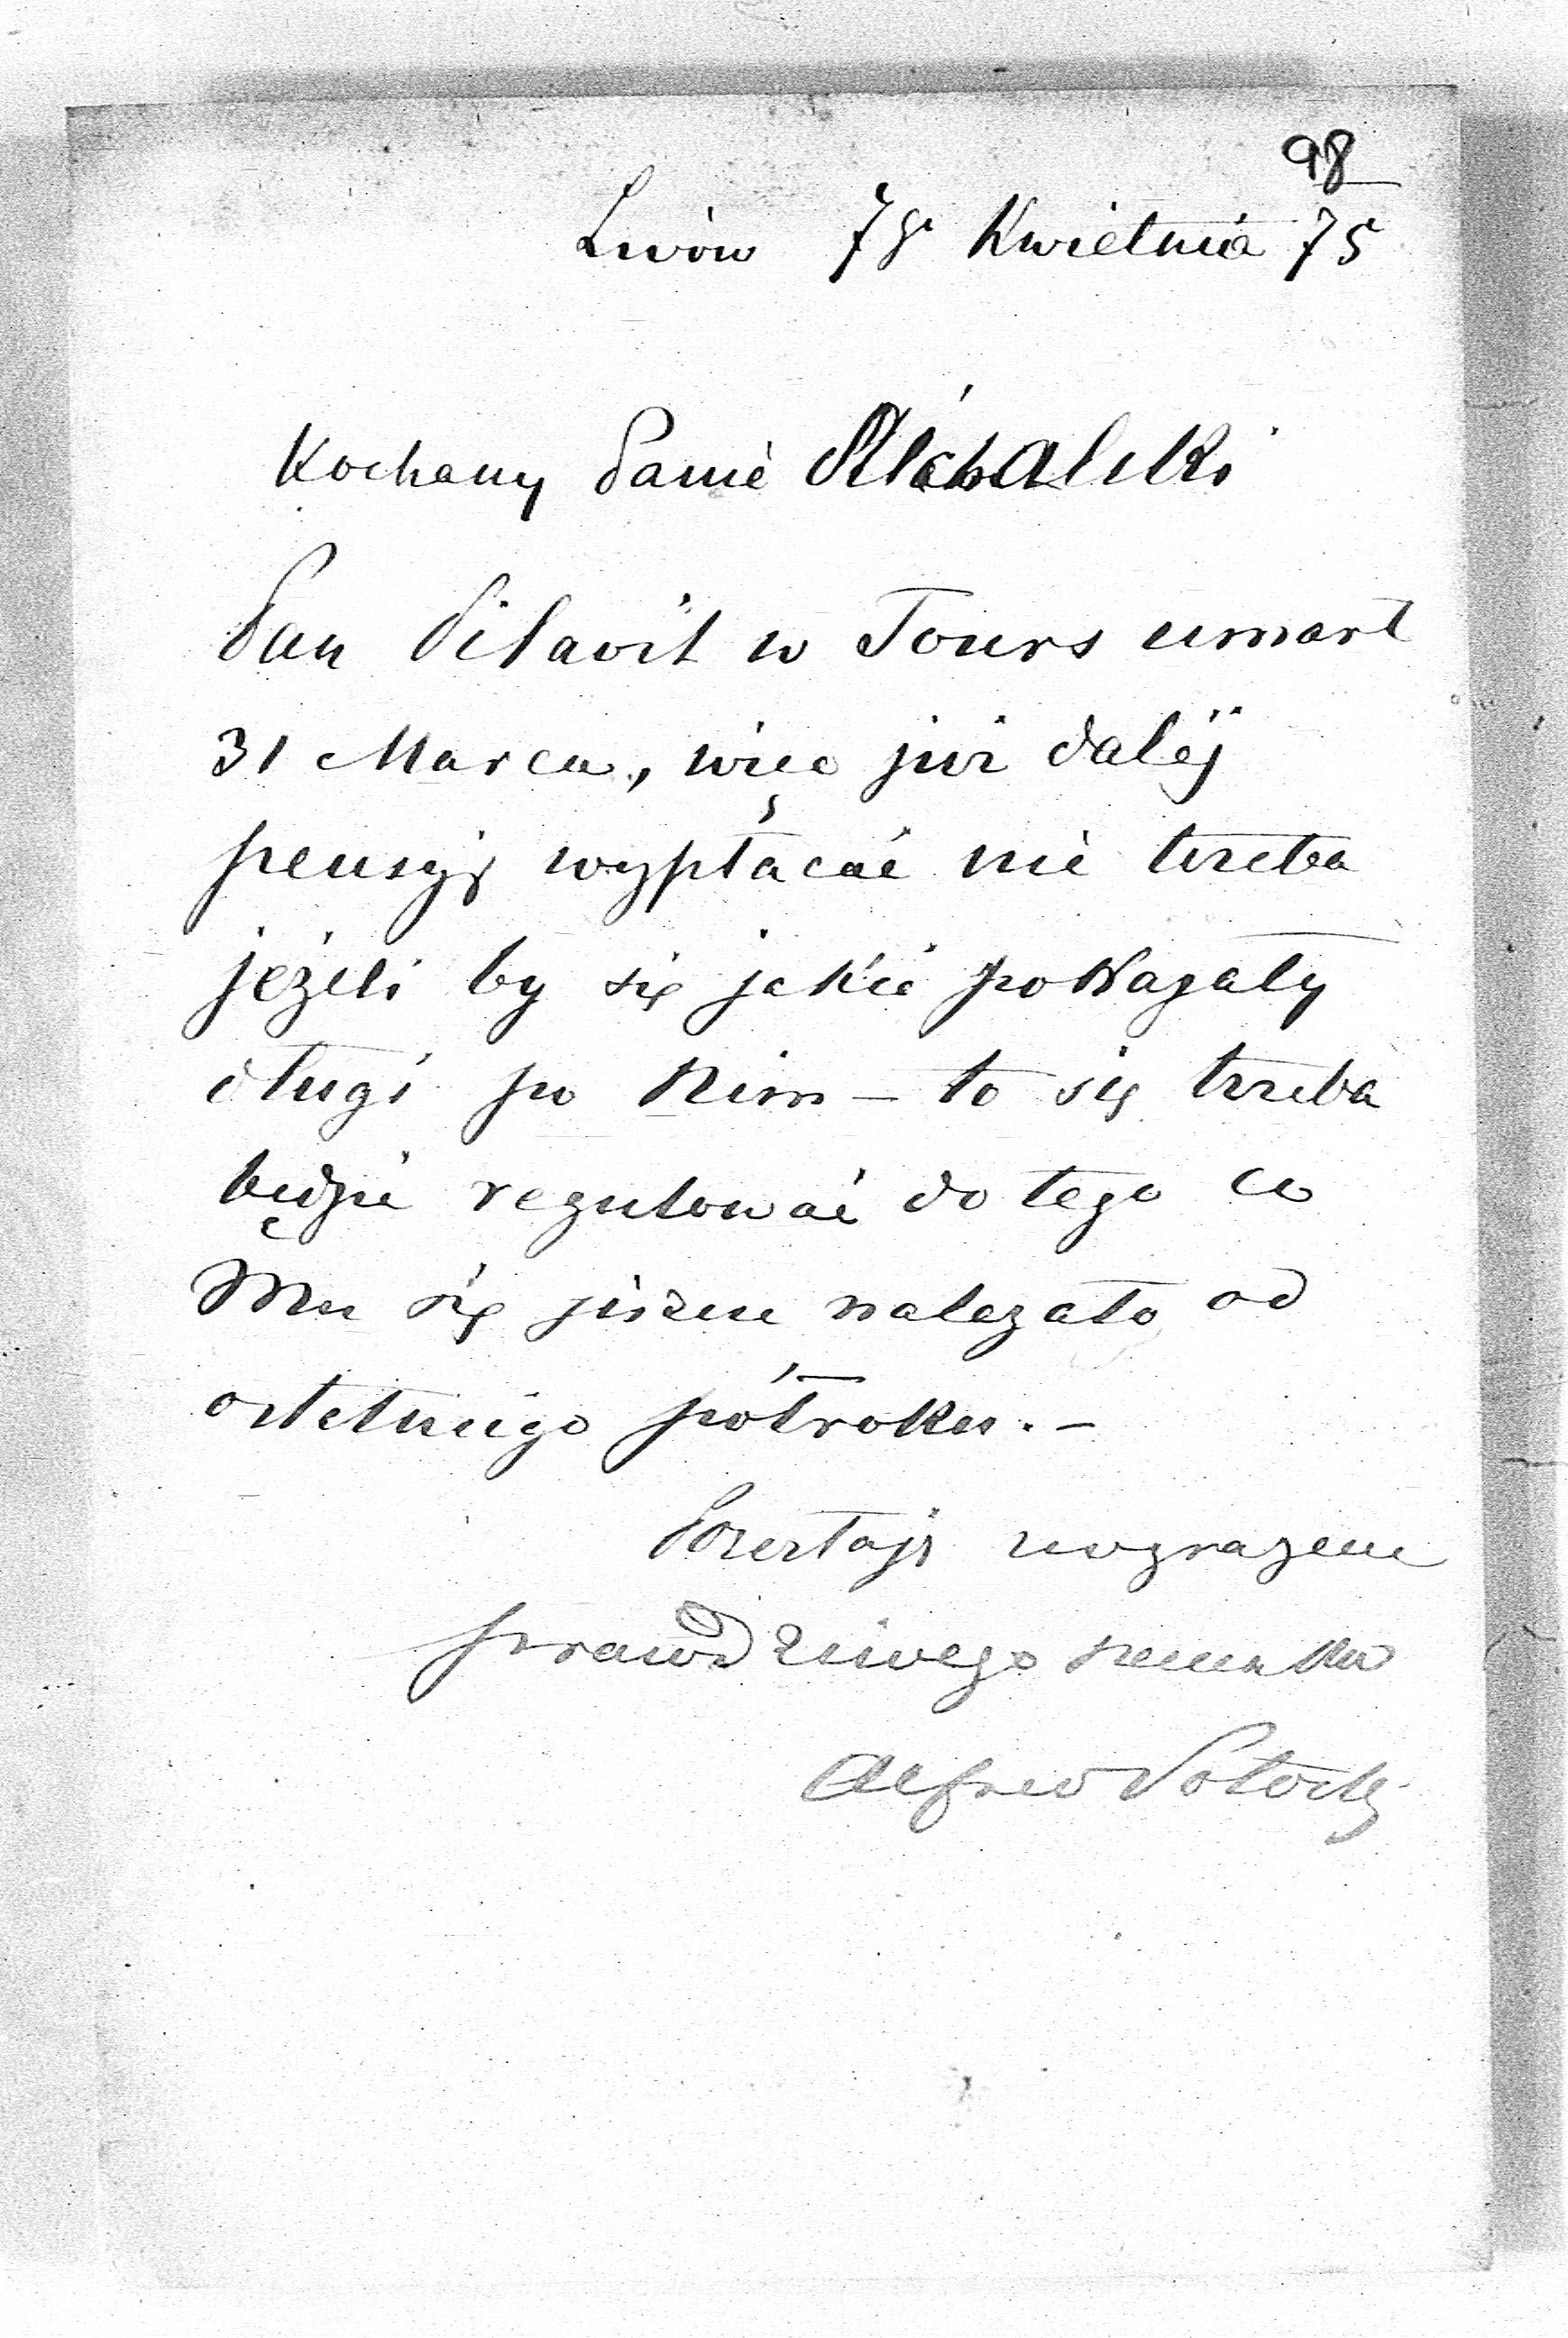 98
Lwów 7go Kwietnia 75
Kochany Panie
Pan Pilavoit w Tours umarł
31 Marca, więc już dalėj
pensyę wypłacać nie trzeba
jeżeli by się jakie pokazały
długi po Nim – to się trzeba
będzie regulować do tego co
Mu się jeszcze należało od
ostatniego półroku. –
Przesłaję
prawdziwego szacunku
Alfred Potocki